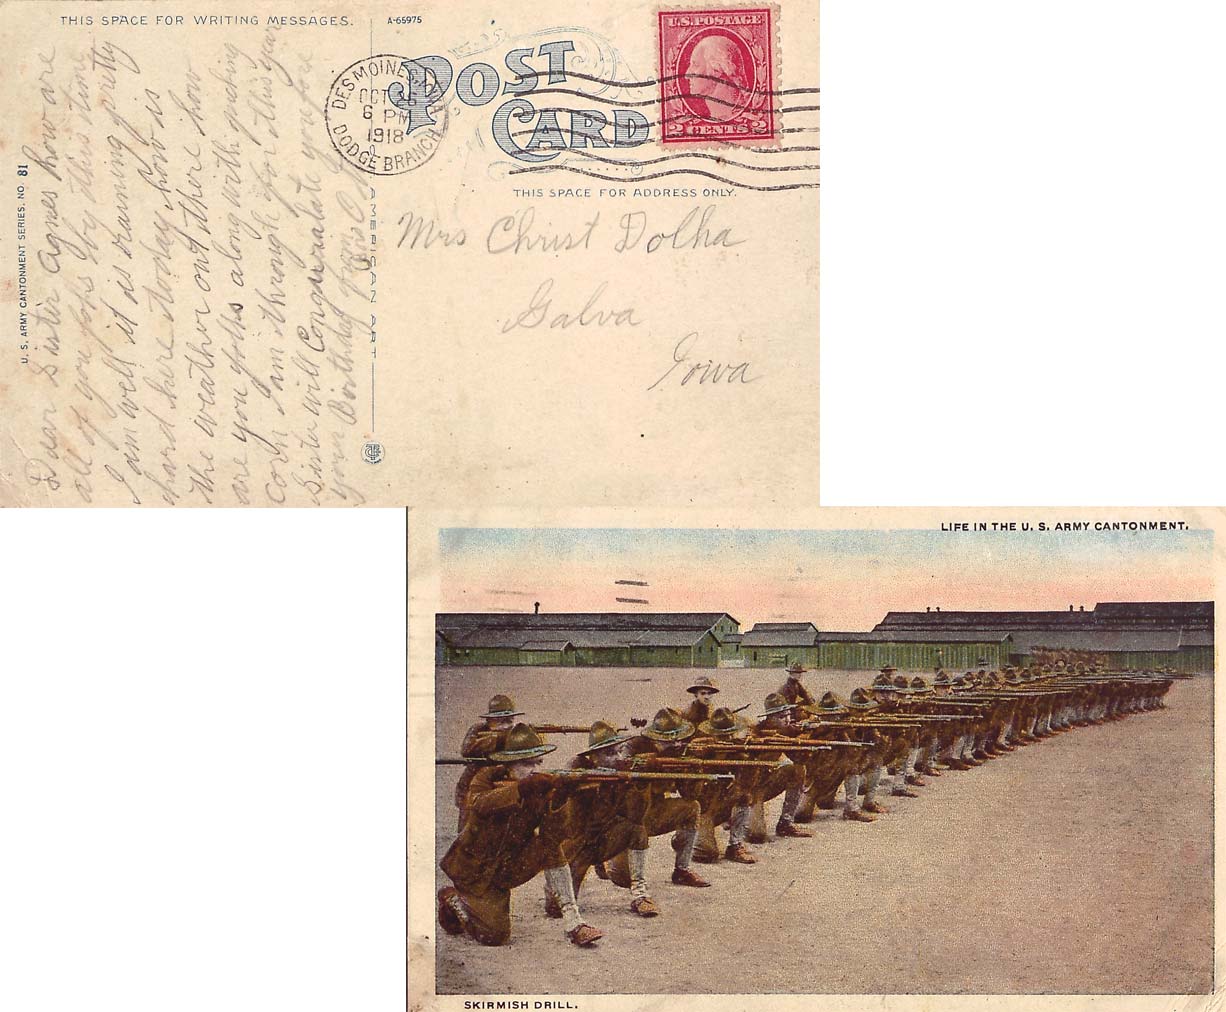 THIS SPACE FOR WRITING MESSAGES.
A-65975
POST CARD
U.S. POSTAGE
2 CENTS 2
DES MOINES, IOWA
OCT
6 PM
1918
DODGE BRANCH
THIS SPACE FOR ADDRESS ONLY.
U. S. ARMY CANTONMENT SERIES. NO. 81
AMERICAN ART
Dear Sister Agnes how are
all of you folks by this time
I am well it is raining pretty
hard here today how is
the weather out there how
are you folks along with picking
corn I am through for this year
Sister will Congratulate you fore
your Birthday from
Mrs Christ Dolha
Galva
Iowa
LIFE IN THE U. S. ARMY CANTONMENT.
SKIRMISH DRILL.